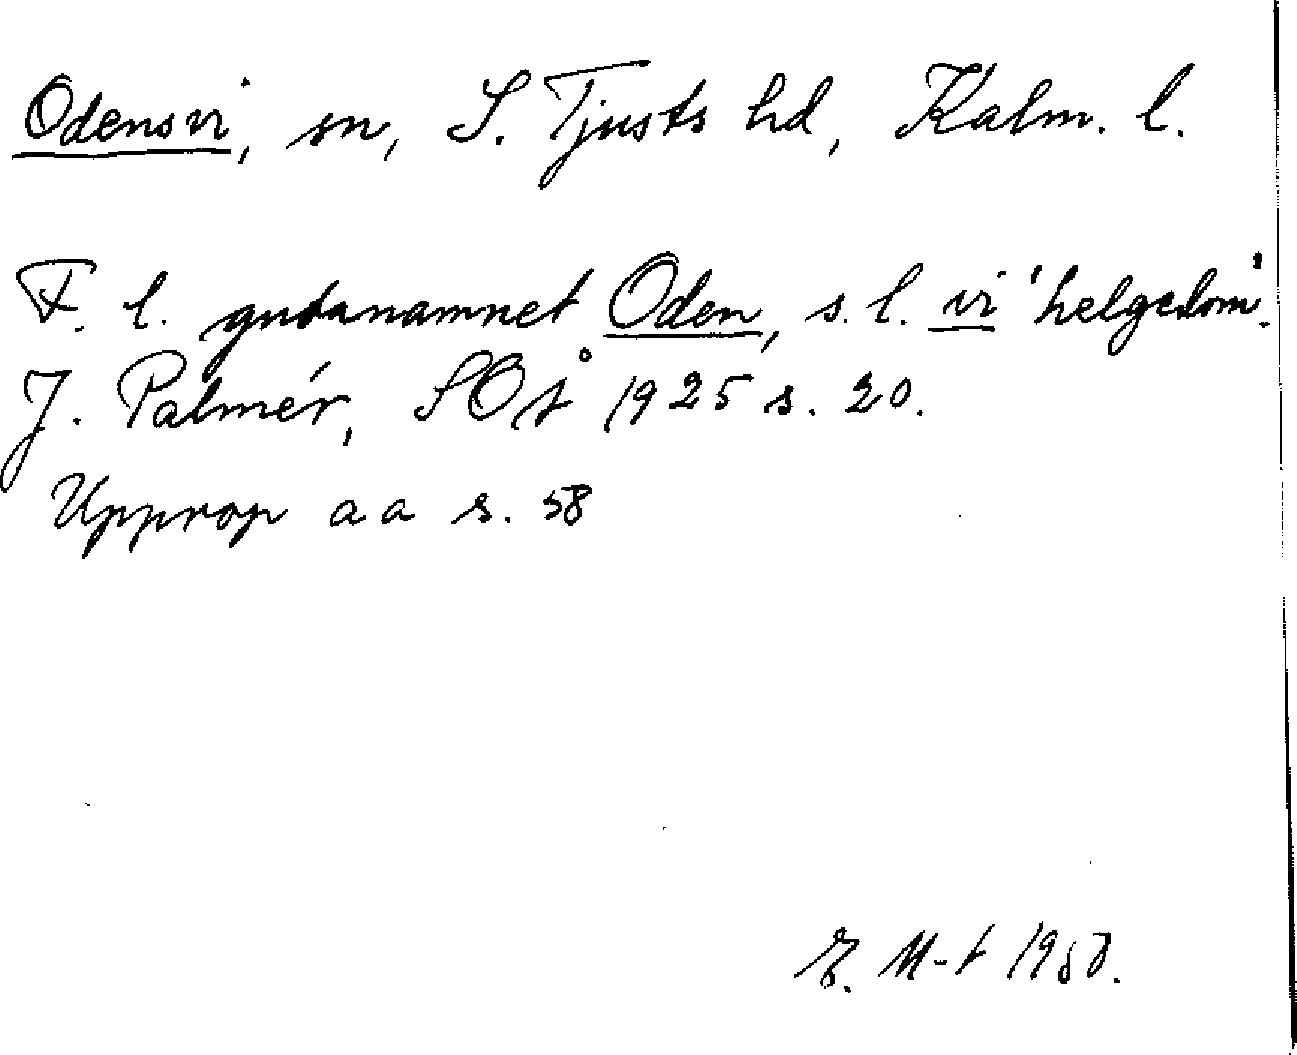 Odensvi, sn, S. Tjusts hd, Kalm. l.
F. l. gudanamnet Oden, s. l. vi 'helgedom'.
J. Palmér, SOÅ 1925 s. 20.
Upprop a a s. 58
M-t